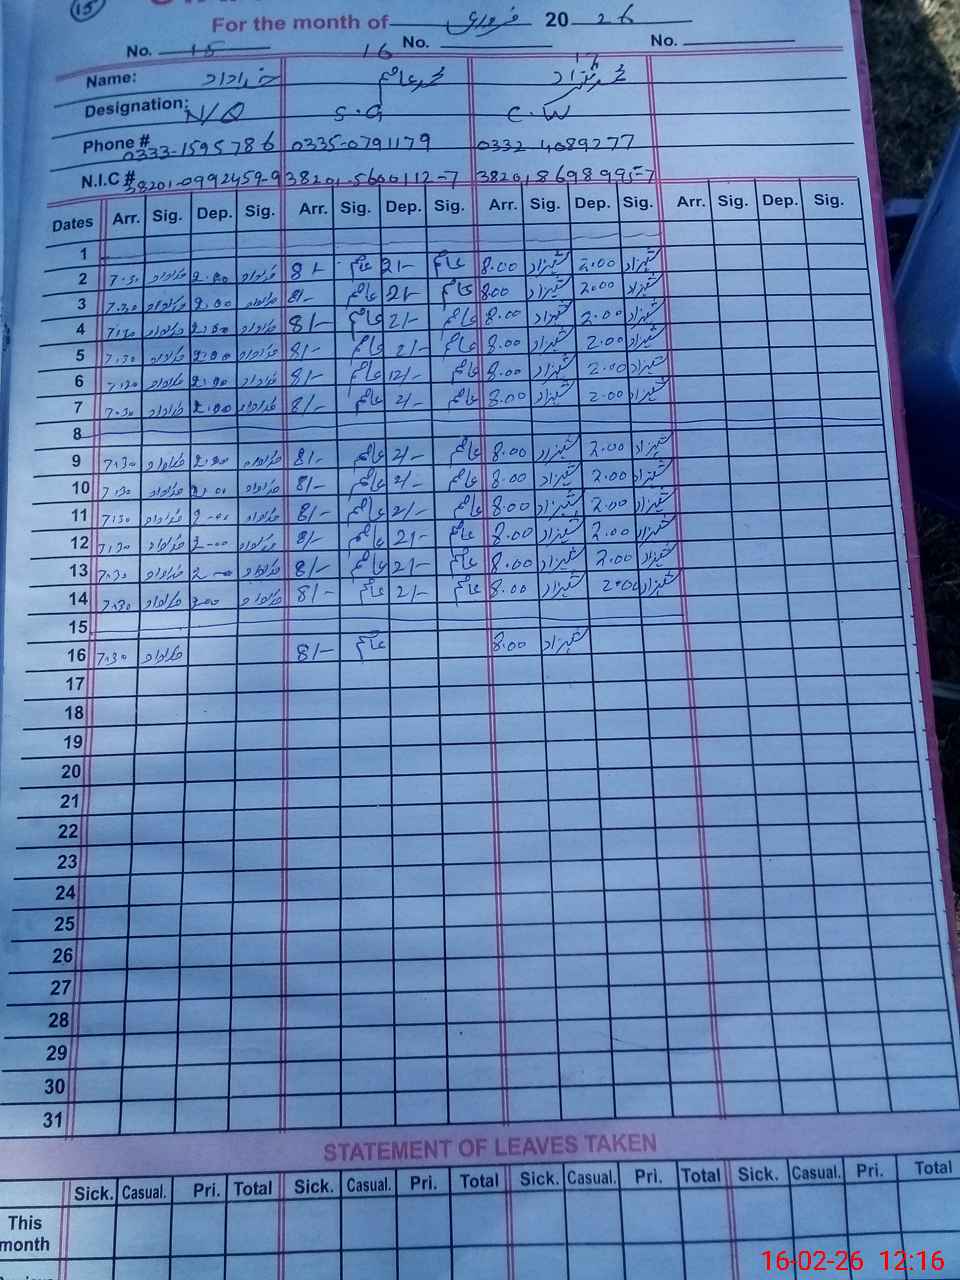 15
For the month of فروری 20 26
No. 15 16 No. 17 No.
Name: خداداد محمد عاصم محمد شہزاد
Designation: N/Q S.G C.W
Phone # 0333-1595786 0335-0791179 0332 4089277
N.I.C # 38201-0992459-9 38201-5600112-7 38201869899
Dates Arr. Sig. Dep. Sig. Arr. Sig. Dep. Sig. Arr. Sig. Dep. Sig. Arr. Sig. Dep. Sig.
1
2 7.30 خداداد 2.00 خداداد 8/- عاصم 2/- عاصم 8.00 شہزاد 2.00 شہزاد
3 7.30 خداداد 2.00 خداداد 8/- عاصم 2/- عاصم 800 شہزاد 2.00 شہزاد
4 7.30 خداداد 2.00 خداداد 8/- عاصم 2/- عاصم 8.00 شہزاد 2.00 شہزاد
5 7.30 خداداد 2.00 خداداد 8/- عاصم 2/- عاصم 8.00 شہزاد 2.00 شہزاد
6 7.30 خداداد 2.00 خداداد 8/- عاصم 2/- عاصم 8.00 شہزاد 2.00 شہزاد
7 7.30 خداداد 2.00 خداداد 8/- عاصم 2/- عاصم 8.00 شہزاد 2.00 شہزاد
8
9 7.30 خداداد 2.00 خداداد 8/- عاصم 2/- عاصم 8.00 شہزاد 2.00 شہزاد
10 7.30 خداداد 2.00 خداداد 8/- عاصم 2/- عاصم 8.00 شہزاد 2.00 شہزاد
11 7.30 خداداد 2.00 خداداد 8/- عاصم 2/- عاصم 8.00 شہزاد 2.00 شہزاد
12 7.30 خداداد 2.00 خداداد 8/- عاصم 2/- عاصم 8.00 شہزاد 2.00 شہزاد
13 7.30 خداداد 2.00 خداداد 8/- عاصم 2/- عاصم 8.00 شہزاد 2.00 شہزاد
14 7.30 خداداد 2.00 خداداد 8/- عاصم 2/- عاصم 8.00 شہزاد 2.00 شہزاد
15
16 7.30 خداداد 8/- عاصم 8.00 شہزاد
17
18
19
20
21
22
23
24
25
26
27
28
29
30
31
STATEMENT OF LEAVES TAKEN
Sick. Casual. Pri. Total Sick. Casual. Pri. Total Sick. Casual. Pri. Total Sick. Casual. Pri. Total
This
month
16-02-26 12:16